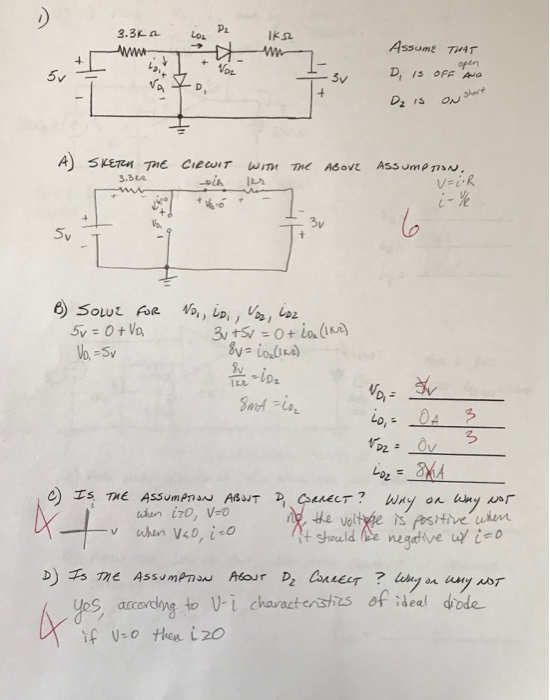 1)
3.3K Ω iD2 D2 1KΩ
5v + - iD1 + VD1 - D1 + VD2 - - 3v +
ASSUME THAT
open
D1 IS OFF AND
short
D2 IS ON
A) SKETCH THE CIRCUIT WITH THE ABOVE ASSUMPTION.
3.3kΩ 1kΩ
V=i·R
i=V/R
5v + - - 3v +
6
B) SOLVE FOR VD1, iD1, VD2, iD2
5v = 0 + VD1 3v + 5v = 0 + iD2(1KΩ)
VD1 = 5v 8v = iD2(1kΩ)
8v/1kΩ = iD2
8mA = iD2
VD1 = 5v
iD1 = 0A 3
VD2 = 0v 3
iD2 = 8mA
C) IS THE ASSUMPTION ABOUT D1 CORRECT? WHY OR WHY NOT
4 v when i≥0, V=0 no, the voltage is positive when
when V<0, i=0 it should be negative w/ i=0
D) IS THE ASSUMPTION ABOUT D2 CORRECT? WHY OR WHY NOT
4 yes, according to V-i characteristics of ideal diode
if V=0 then i≥0